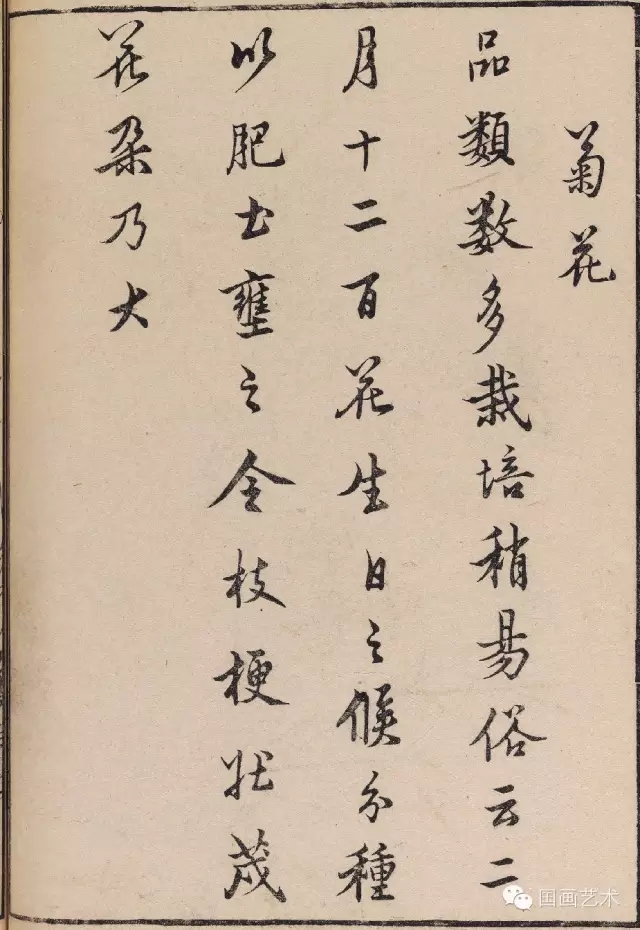 菊花
品類数多栽培稍易俗云二
月十二百花生日之候分種
以肥土壅之令枝梗壯茂
花朶乃大
国画艺术